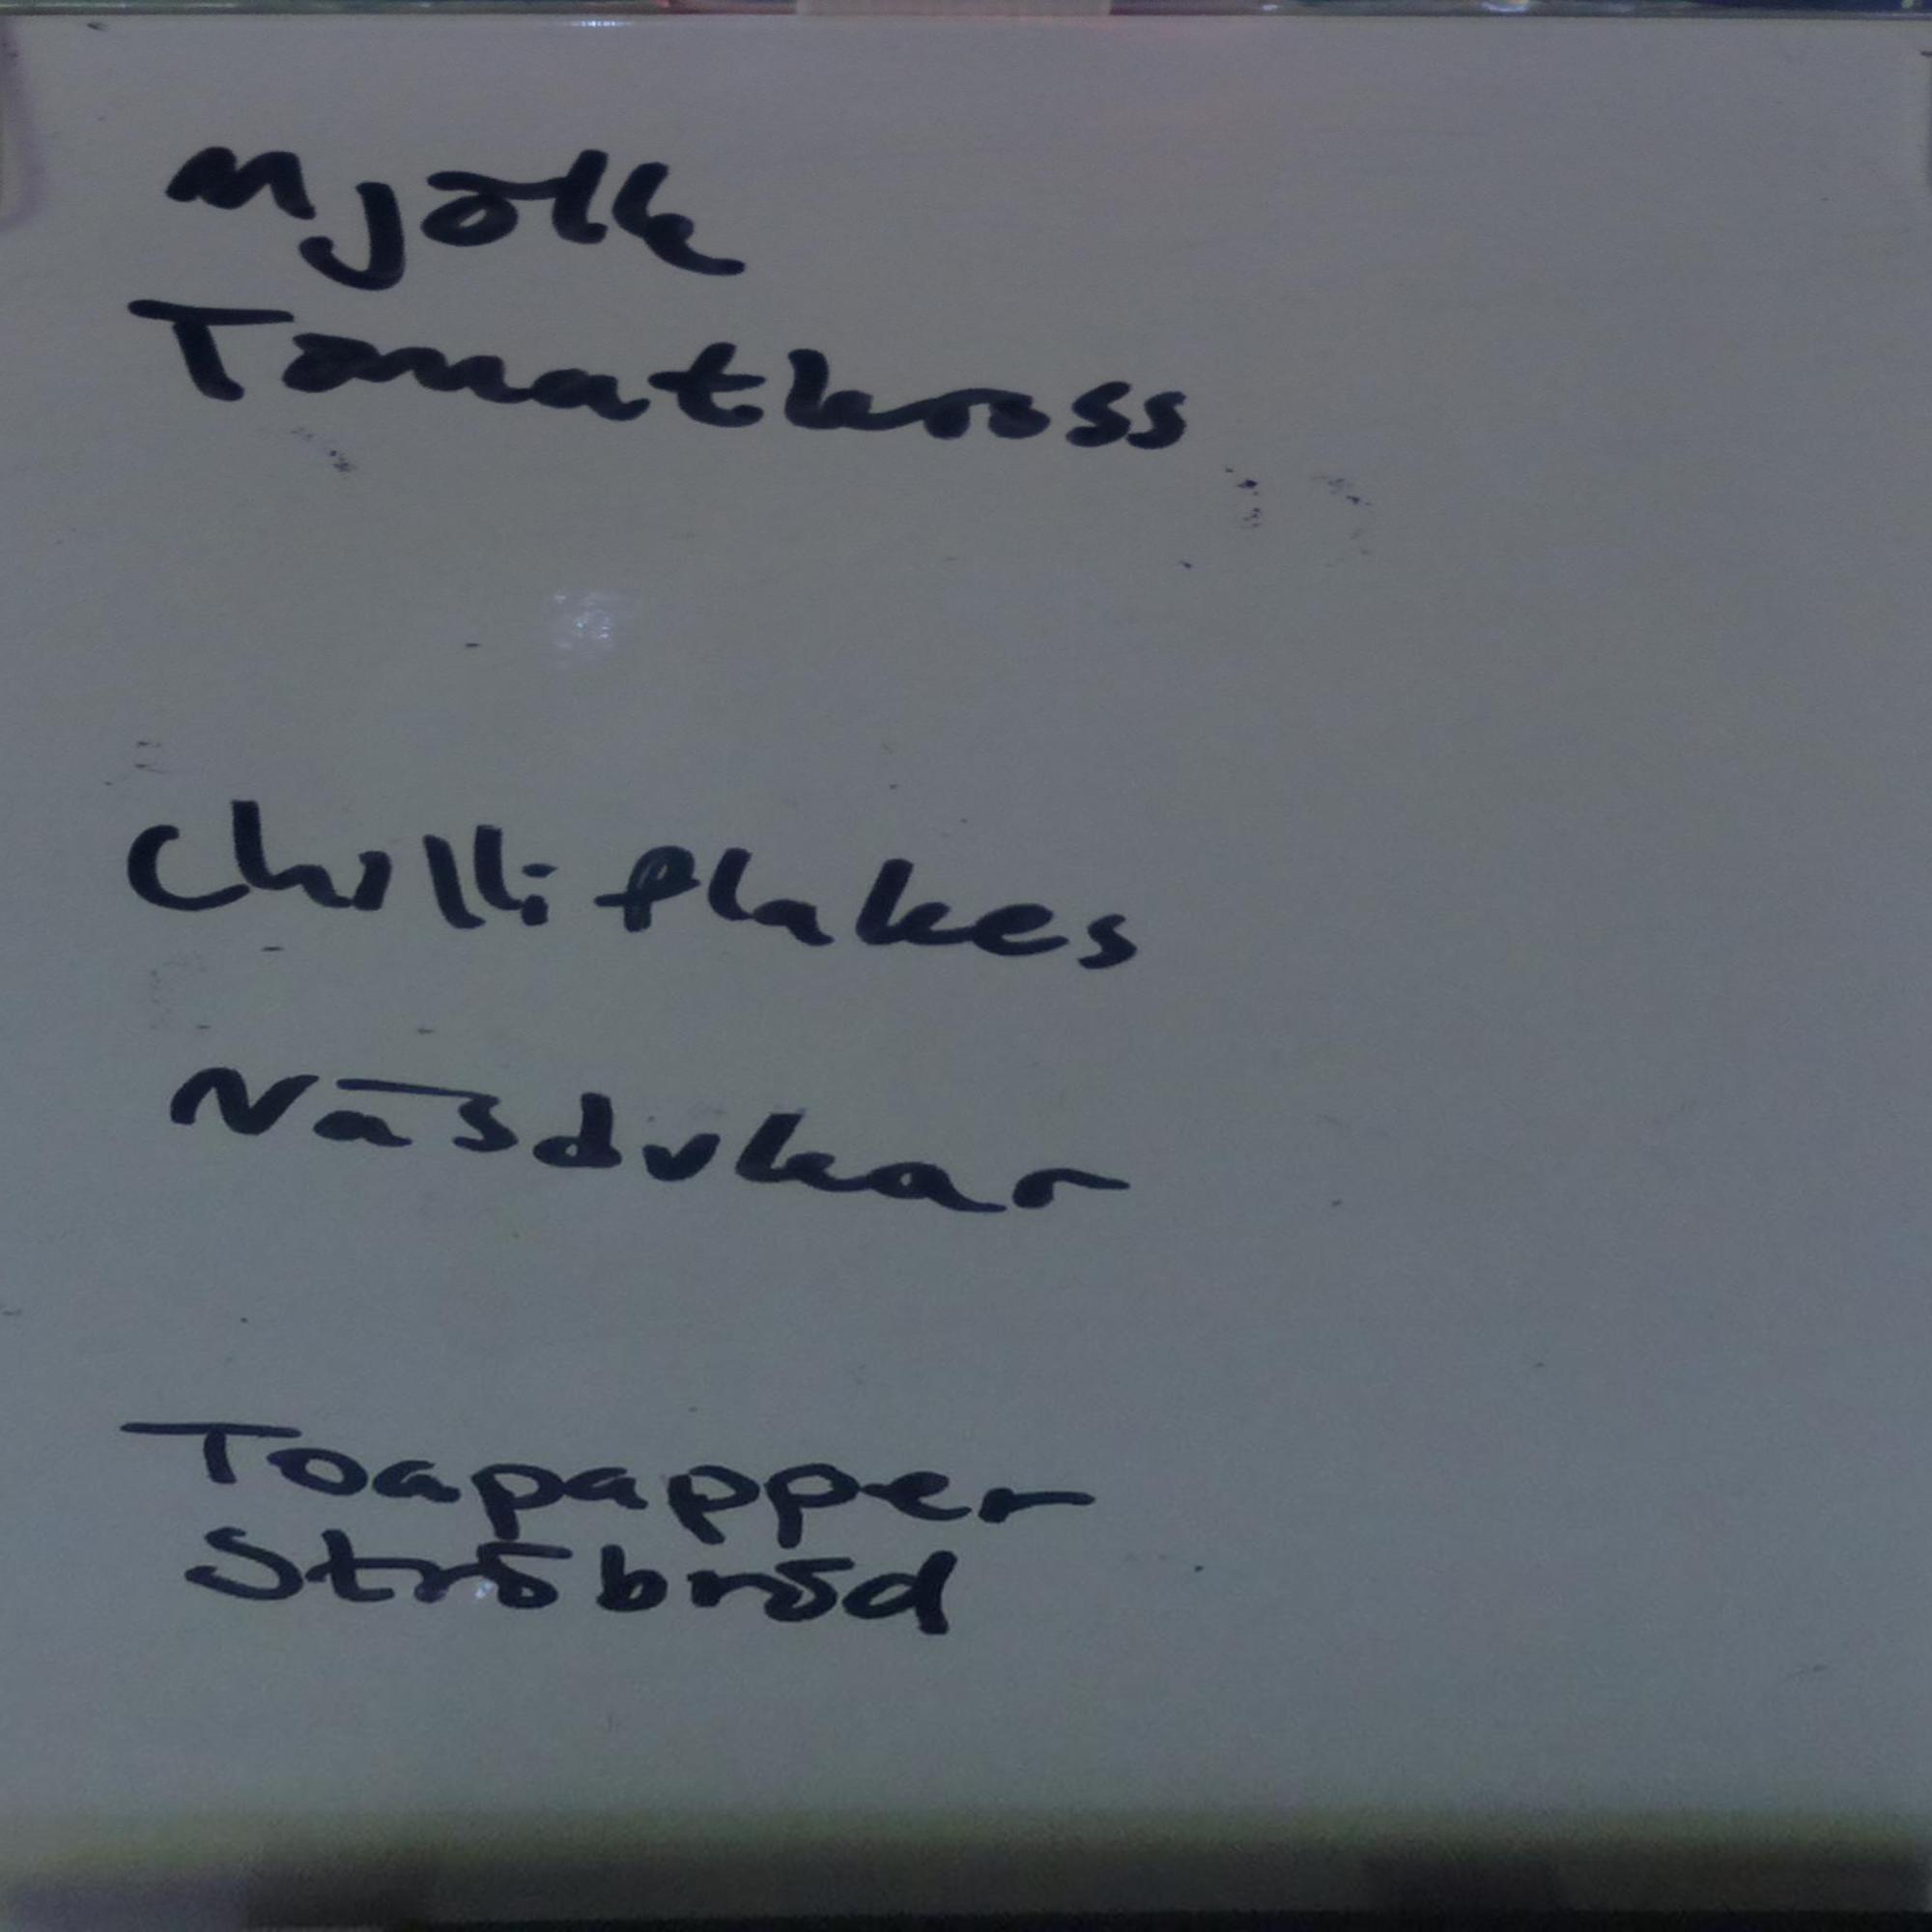 Mjölk
Tomatkross
Chilli flakes
Näsdukar
Toapapper
Ströbröd